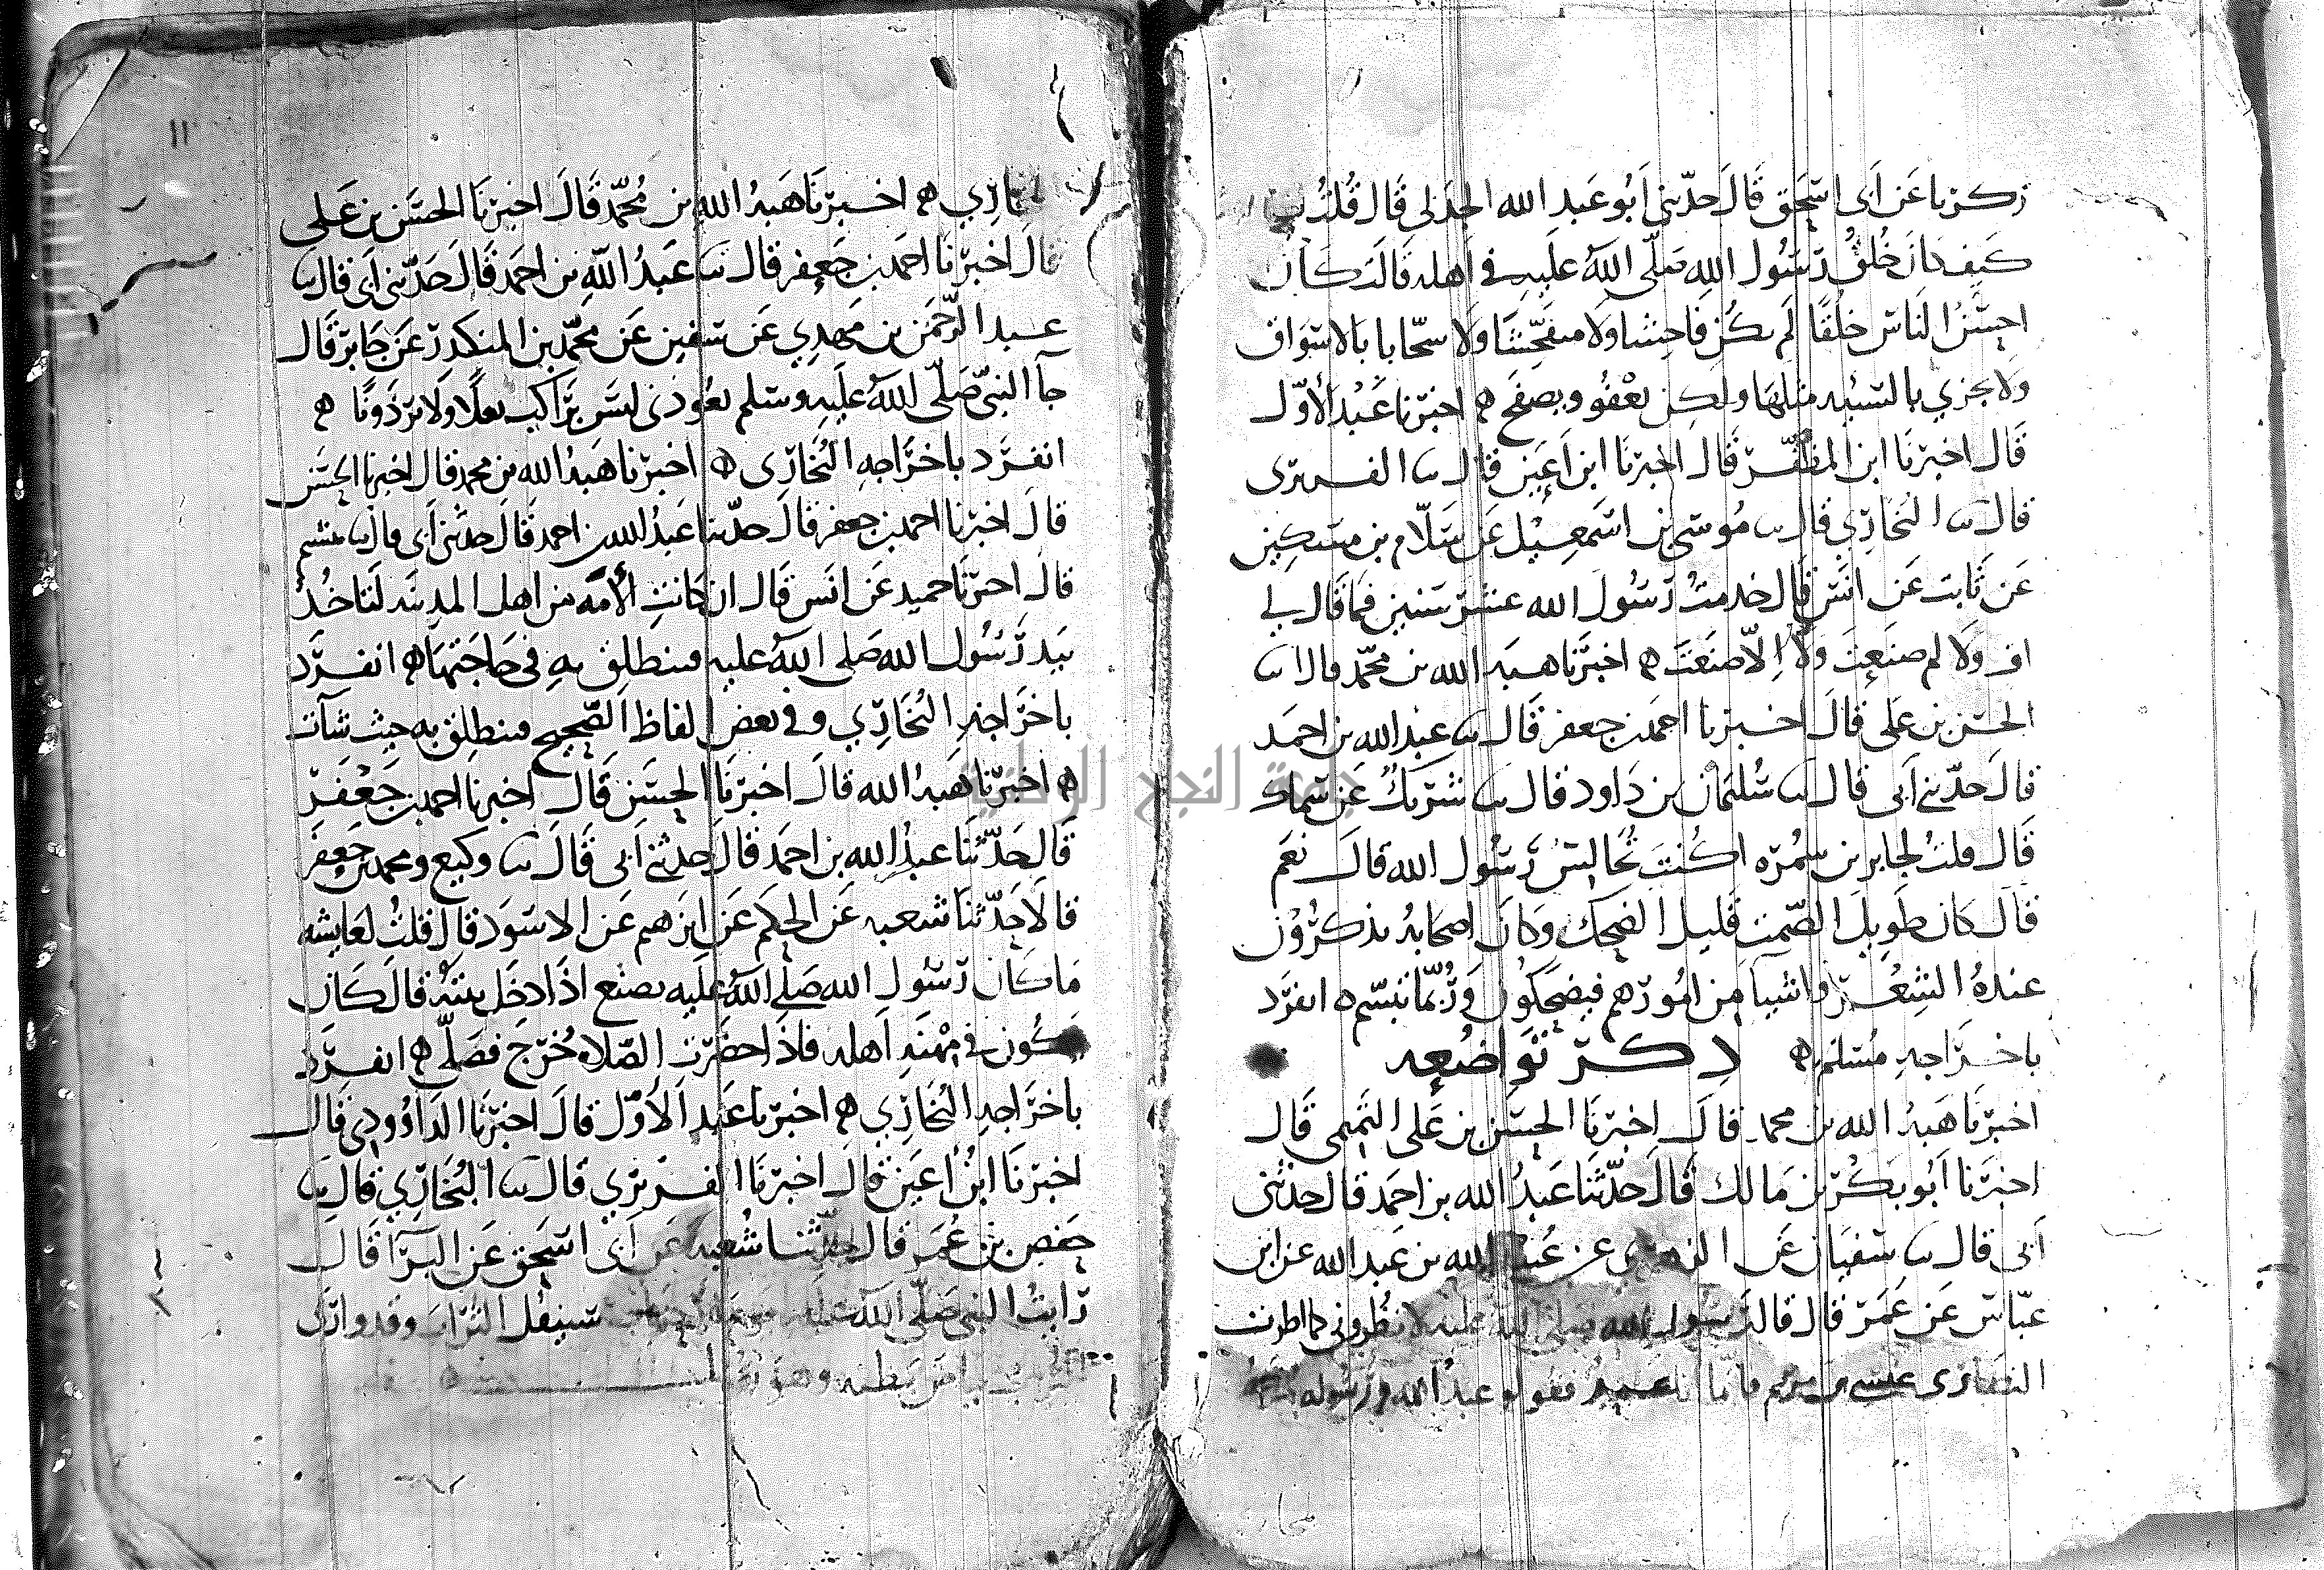 زكريا عن أبي اسحق قال حدثني أبو عبد الله الجدلي قال قلت
كيف كان خلق رسول الله صلى الله عليه في أهله قالت كان
احسن الناس خلقًا لم يكن فاحشا ولا متفحشا ولا سخابا بالاسواق
ولا يجزي بالسيئه مثلها ولكن يعفو ويصفح ه اخبرنا عبد الأول
قال اخبرنا ابن المظفر قال اخبرنا ابن أعين قال سا الفربري
قال سا البخاري قال سا موسى بن اسمعيل عن سلام بن مسكين
عن ثابت عن انس قال خدمت رسول الله عشر سنين فما قال لي
اف ولا لم صنعت ولا إلا صنعت ه اخبرنا هبه الله بن محمد قال انا
الحسن بن علي قال اخبرنا احمد بن جعفر قال سا عبد الله بن احمد
قال حدثني أبي قال سا سليمان بن داود قال سا شريك عن سماك
قال قلت لجابر بن سمره اكنت تجالس رسول الله قال نعم
قال كان طويل الصمت قليل الضحك وكان اصحابه يذكرون
عنده الشعر واشيا من امورهم فيضحكون وربما تبسم ه انفرد
باخراجه مسلم ه ذكر تواضعه
اخبرنا هبه الله بن محمد قال اخبرنا الحسن بن علي التميمي قال
اخبرنا أبو بكر بن مالك قال حدثنا عبد الله بن احمد قال حدثني
أبي قال سا سفيان عن الزهري عن عبيد الله بن عبد الله عن ابن
عباس عن عمر قال قال رسول الله صلى الله عليه لا تطروني كما اطرت
النصارى عيسى بن مريم فانما انا عبد فقولو عبد الله ورسوله
اخبرنا هبه الله بن محمد قال اخبرنا الحسن بن علي
قال اخبرنا احمد بن جعفر قال سا عبد الله بن احمد قال حدثني أبي قال سا
عبد الرحمن بن مهدي عن سفين عن محمد بن المنكدر عن جابر قال
جآ النبي صلى الله عليه وسلم يعودني ليس براكب بغلا ولا برذونًا ه
انفرد باخراجه البخاري ه اخبرنا هبه الله بن محمد قال اخبرنا الحسن
قال اخبرنا احمد بن جعفر قال حدثنا عبد الله بن احمد قال حدثني أبي قال سا هشيم
قال اخبرنا حميد عن انس قال ان كانت الأمه من اهل المدينه لتاخذ
بيد رسول الله صلى الله عليه فتنطلق به في حاجتها ه انفرد
باخراجه البخاري وفي بعض الفاظ الصحيح فتنطلق به حيث شآت
ه اخبرنا هبه الله قال اخبرنا الحسن قال اخبرنا احمد بن جعفر
قال حدثنا عبد الله بن احمد قال حدثني أبي قال سا وكيع ومحمد بن جعفر
قالا حدثنا شعبه عن الحكم عن ابرهم عن الاسود قال قلت لعايشه
ما كان رسول الله صلى الله عليه يصنع اذا دخل بيته قال كان
يكون في مهنه اهله فاذا حضرت الصلاه خرج فصلى ه انفرد
باخراجه البخاري ه اخبرنا عبد الأول قال اخبرنا الداوودي قال
اخبرنا ابن أعين قال اخبرنا الفربري قال سا البخاري قال سا
حفص بن عمر قال حدثنا شعبه عن أبي اسحق عن البرآ قال
رايت النبي صلى الله عليه ينقل التراب وقد وارى
بياض بطنه وهو